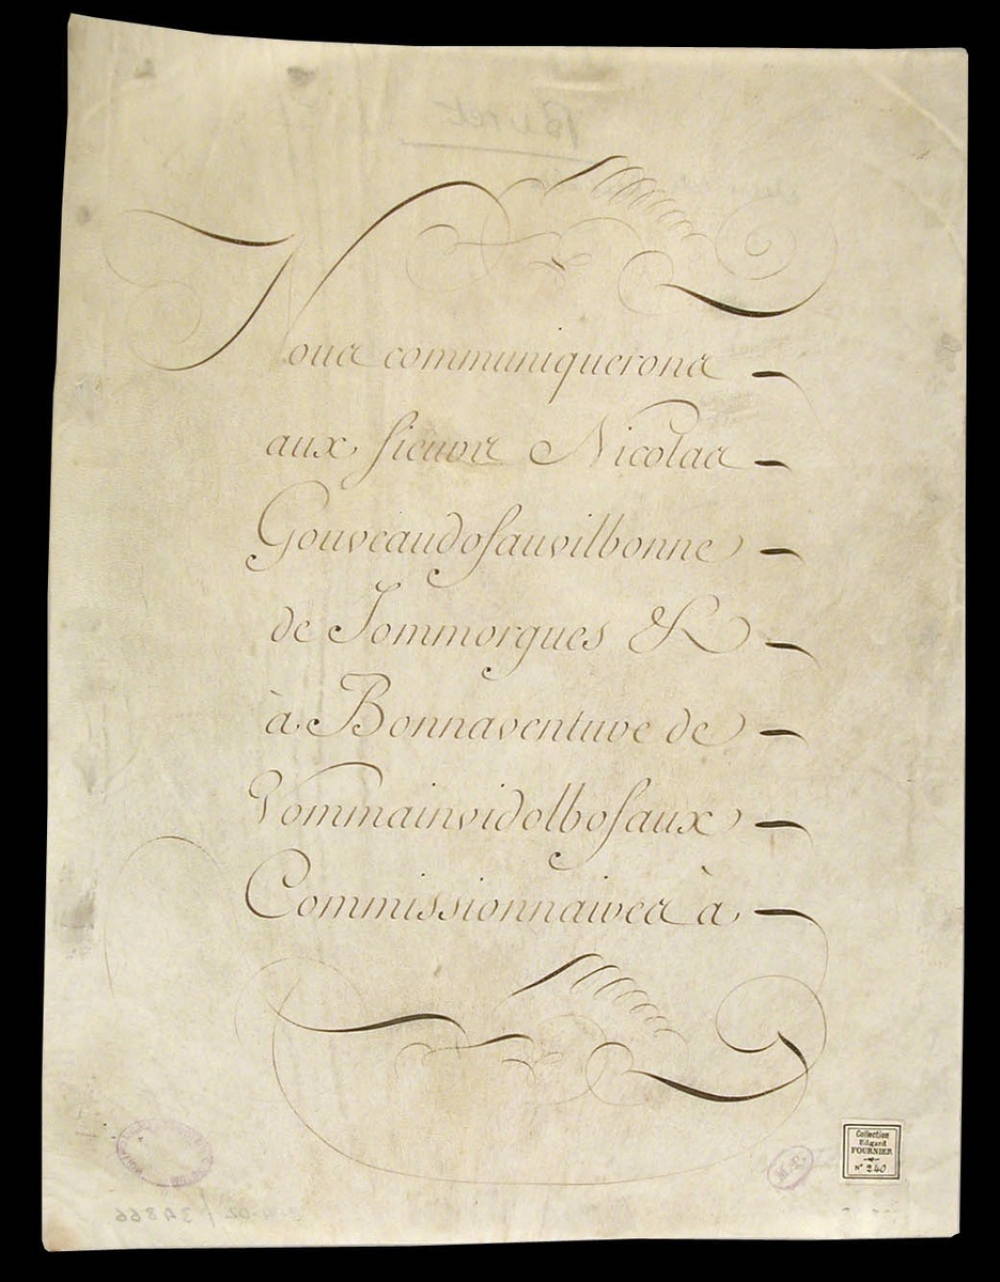 Nous communiquerons
aux sieurs Nicolas
Gouveaudosauvilbonne
de Jommorgues &
à Bonnaventure de
Vommainvidolbosaux
Commissionnaires à
Collection
Edgard
FOURNIER
N° 240